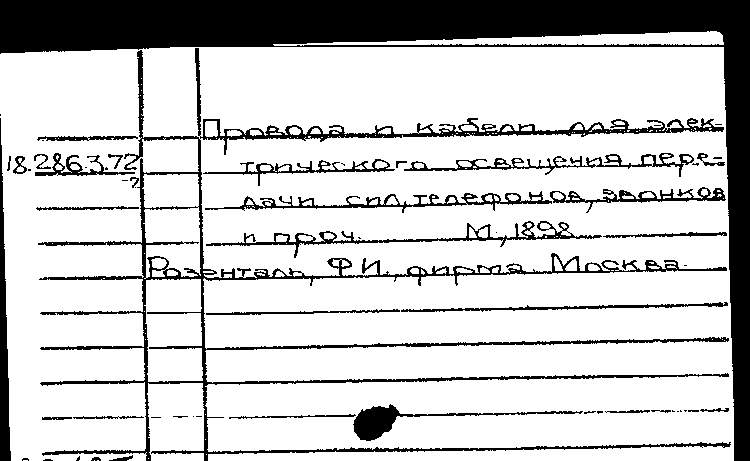 Провода и кабели для элек-
18.286.3.72 трического освещения, пере-
-2 дачи сил, телефонов, звонков
и проч. М., 1898
Розенталь, Ф.И., фирма. Москва.